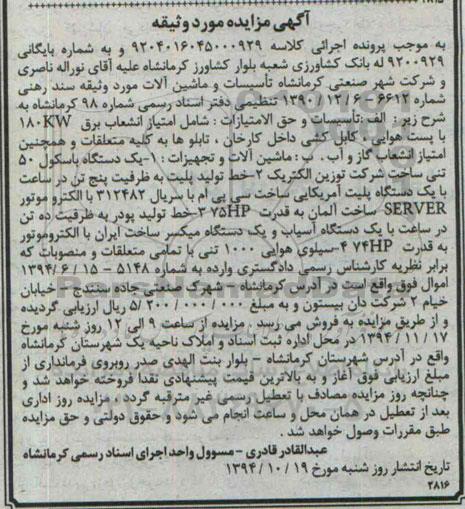 آگهی مزایده مورد وثیقه
به موجب پرونده اجرائی کلاسه ۹۲۰۴۰۱۶۰۴۵۰۰۰۹۲۹ و به شماره بایگانی
۹۲۰۰۹۲۹ له بانک کشاورزی شعبه بلوار کشاورز کرمانشاه علیه آقای نوراله ناصری
و شرکت شهر صنعتی کرمانشاه تأسیسات و ماشین آلات مورد وثیقه سند رهنی
شماره ۶۶۱۲ - ۱۳۹۰/۱۲/۶ تنظیمی دفتر اسناد رسمی شماره ۹۸ کرمانشاه به
شرح زیر : الف :تأسیسات و حق الامتیازات : شامل امتیاز انشعاب برق ۱۸۰KW
با پست هوایی ، کابل کشی داخل کارخان ، تابلو ها به کلیه متعلقات و همچنین
امتیاز انشعاب گاز و آب . ب : ماشین آلات و تجهیزات : ۱-یک دستگاه باسکول ۵۰
تنی ساخت شرکت توزین الکتریک ۲-خط تولید پلیت به ظرفیت پنج تن در ساعت
با یک دستگاه پلیت آمریکایی ساخت سی پی ام با سریال ۳۱۲۴۸۲ با الکترو موتور
SERVER ساخت آلمان به قدرت ۷۵HP ۳-خط تولید پودر به ظرفیت ده تن
در ساعت با یک دستگاه آسیاب و یک دستگاه میکسر ساخت ایران با الکتروموتور
به قدرت ۷۴HP ۴-سیلوی هوایی ۱۰۰۰ تنی با تمامی متعلقات و منصوبات که
برابر نظریه کارشناس رسمی دادگستری وارده به شماره ۵۱۴۸ - ۱۳۹۴/۶/۱۵
اموال فوق واقع است در آدرس کرمانشاه - شهرک صنعتی جاده سنندج - خیابان
خیام ۲ شرکت دان بیستون و به مبلغ ۵/۲۰۰/۰۰۰/۰۰۰ ریال ارزیابی گردیده
و از طریق مزایده به فروش می رسد . مزایده از ساعت ۹ الی ۱۲ روز شنبه مورخ
۱۳۹۴/۱۱/۱۷ در محل اداره ثبت اسناد و املاک ناحیه یک شهرستان کرمانشاه
واقع در آدرس شهرستان کرمانشاه - بلوار بنت الهدی صدر روبروی فرمانداری از
مبلغ ارزیابی فوق آغاز و به بالاترین قیمت پیشنهادی نقدا فروخته خواهد شد و
چنانچه روز مزایده مصادف با تعطیل رسمی غیر مترقبه گردد ، مزایده روز اداری
بعد از تعطیل در همان محل و ساعت انجام می شود و حقوق دولتی و حق مزایده
طبق مقررات وصول خواهد شد .
عبدالقادر قادری - مسوول واحد اجرای اسناد رسمی کرمانشاه
تاریخ انتشار روز شنبه مورخ ۱۳۹۴/۱۰/۱۹
۲۸۱۶